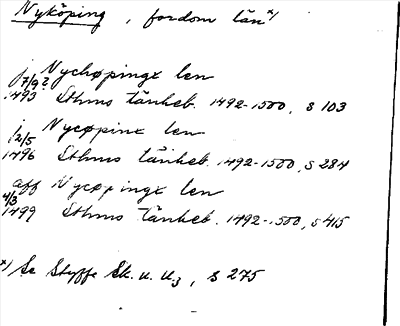 Nyköping, fordom län x)
j Nychøpingx len
7/9? 1493 Sthms tänkeb. 1492-1500, s 103
j Nycøpinx len
12/5 1496 Sthms tänkeb. 1492-1500, s 284
aff Nycøpingx len
4/3 1499 Sthms tänkeb. 1492-1500, s 415
x) Se Styffe Sk. u. U3, s 275